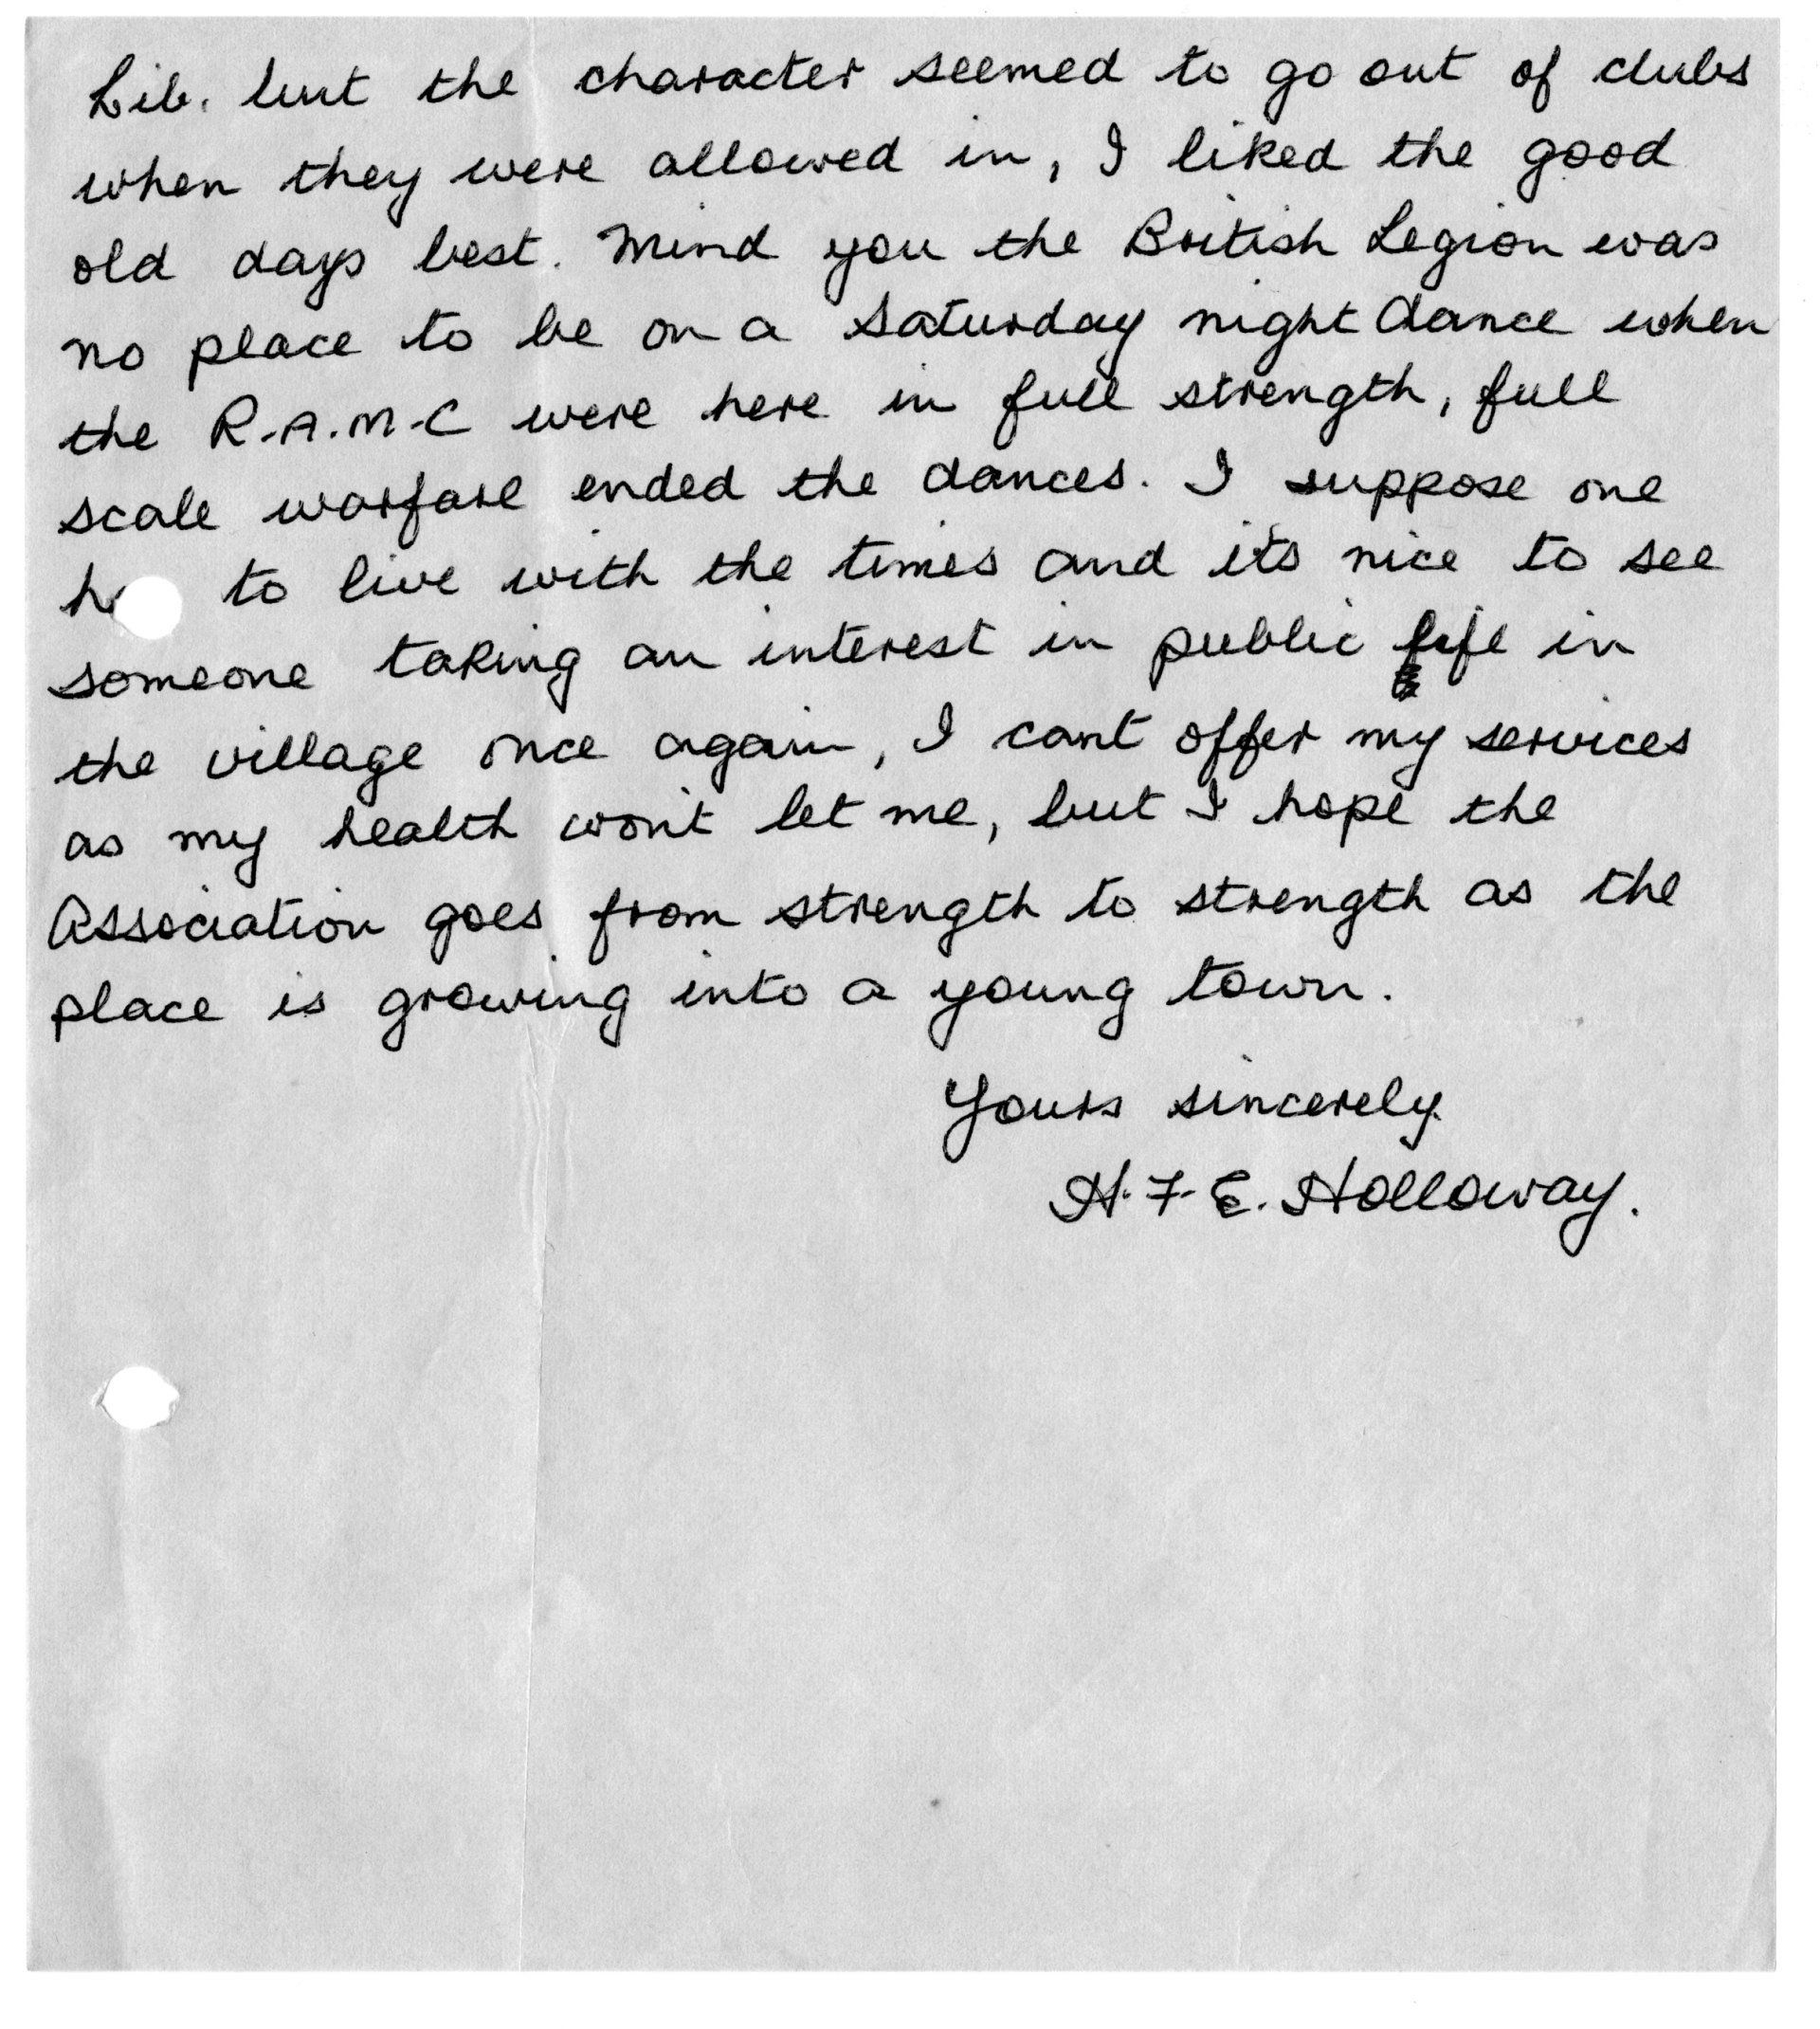 Lib. but the character seemed to go out of clubs
when they were allowed in, I liked the good
old days best. Mind you the British Legion was
no place to be on a Saturday night dance when
the R.A.M.C were here in full strength, full
scale warfare ended the dances. I suppose one
to live with the times and its nice to see
someone taking an interest in public life in
the village once again, I cant offer my services
as my health won't let me, but I hope the
Association goes from strength to strength as the
place is growing into a young town.
Yours sincerely
H.F.E. Holloway.